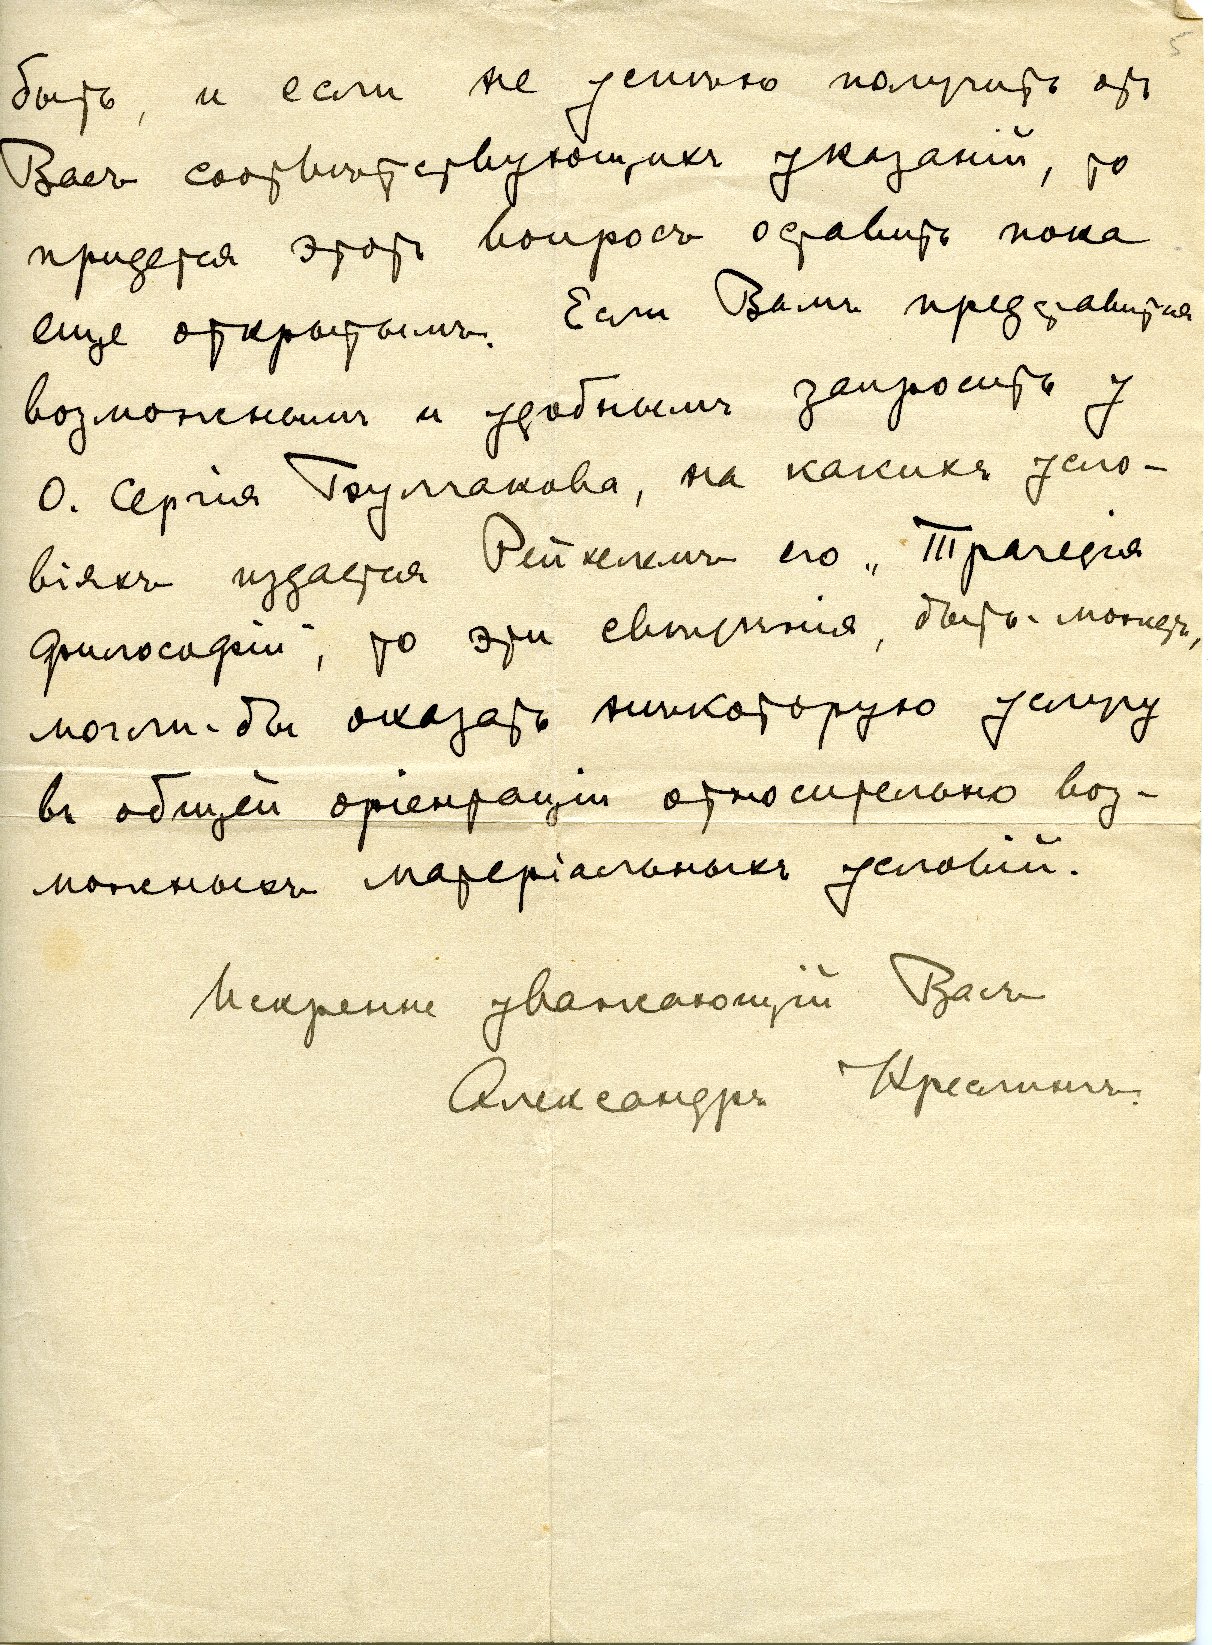 5
быть, и если не успѣю получить отъ
Васъ соотвѣтствующихъ указаній, то
придется этотъ вопросъ оставить пока
еще открытымъ. Если Вамъ представится
возможнымъ и удобнымъ запросить у
О. Сергія Булгакова, на какихъ усло-
віяхъ издается Рейхлемъ его „Трагедія
философіи", то эти свѣдѣнія, быть-можетъ,
могли-бы оказать нѣкоторую услугу
въ общей оріентаціи относительно воз-
можныхъ матеріальныхъ условій.
Искренне уважающій Васъ
Александръ Креслингъ.